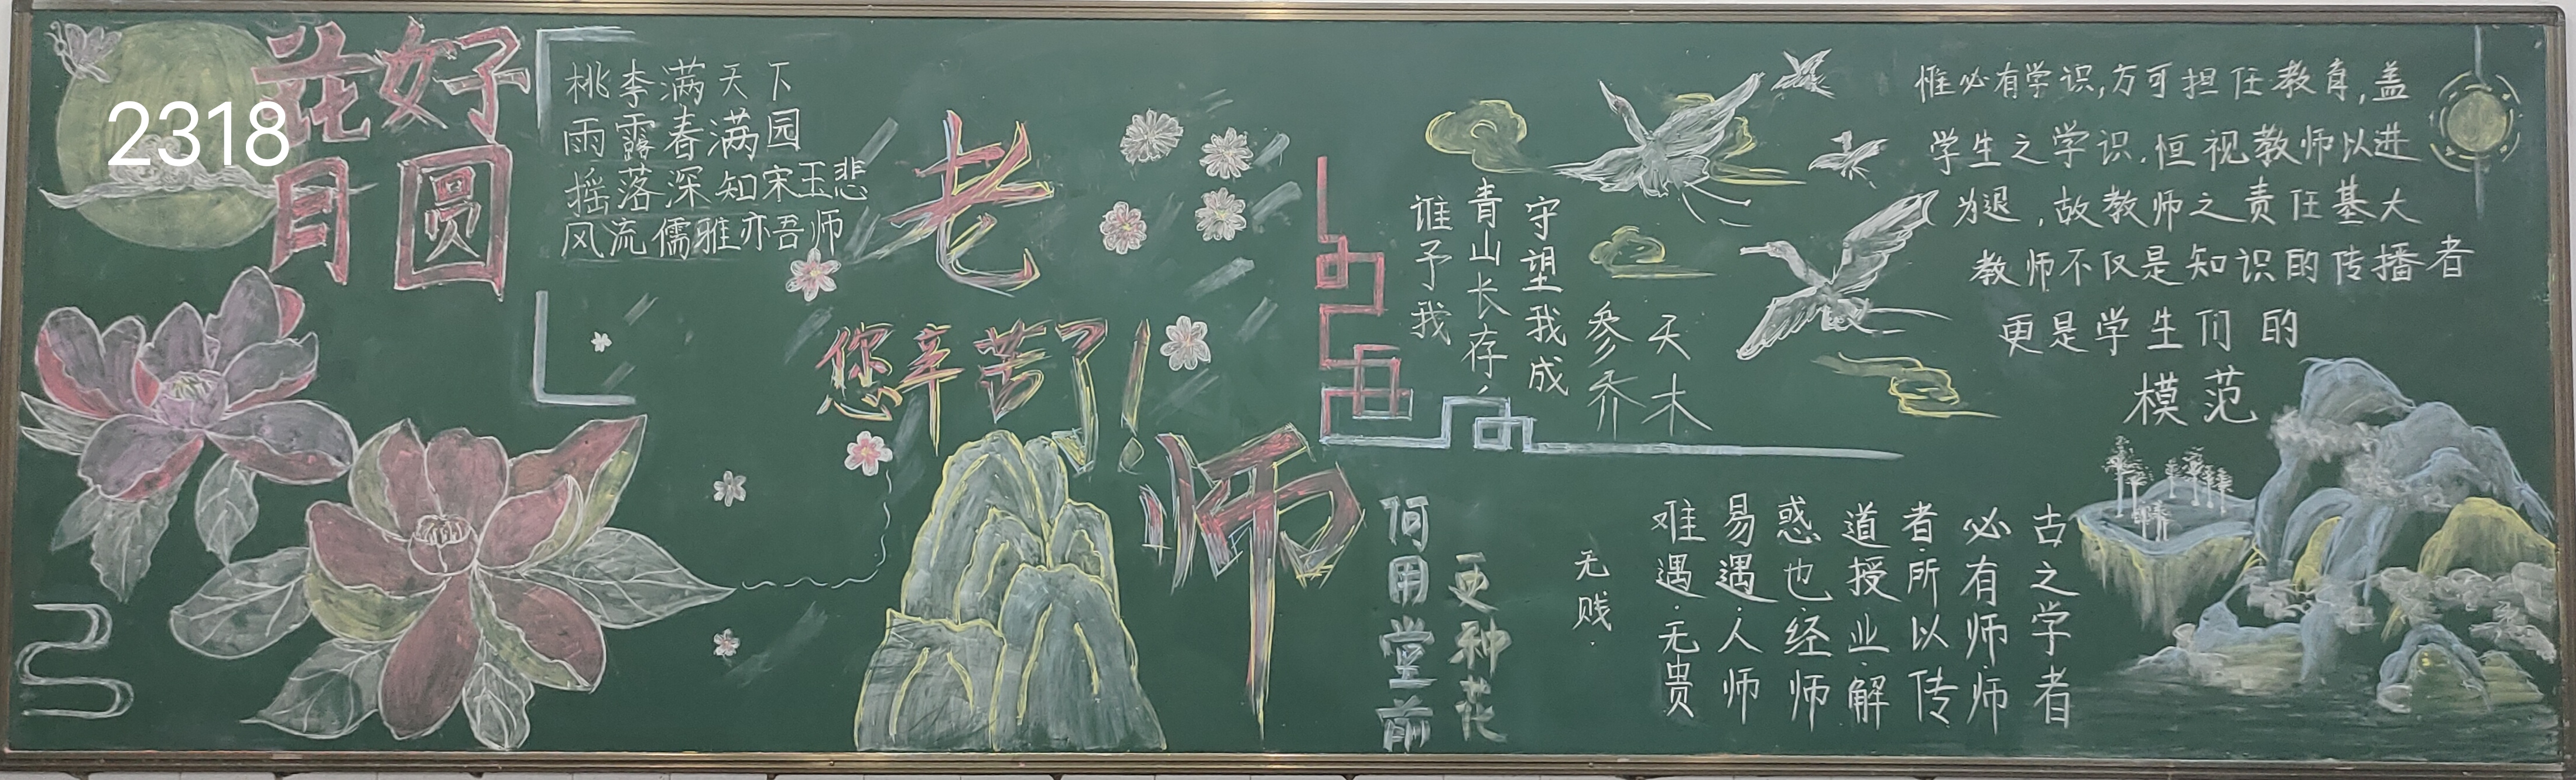 2318
花好
月圆
桃李满天下
雨露春满园
摇落深知宋玉悲
风流儒雅亦吾师
老师
您辛苦了!
谁予我
青山长存,
守望我成
参乔
天木
惟必有学识,方可担任教育,盖
学生之学识.恒视教师以进
为退,故教师之责任基大
教师不仅是知识的传播者
更是学生们的
模范
古之学者
必有师.师
者.所以传
道授业.解
惑也.经师
易遇.人师
难遇.无贵
无贱.
更种花
何用堂前